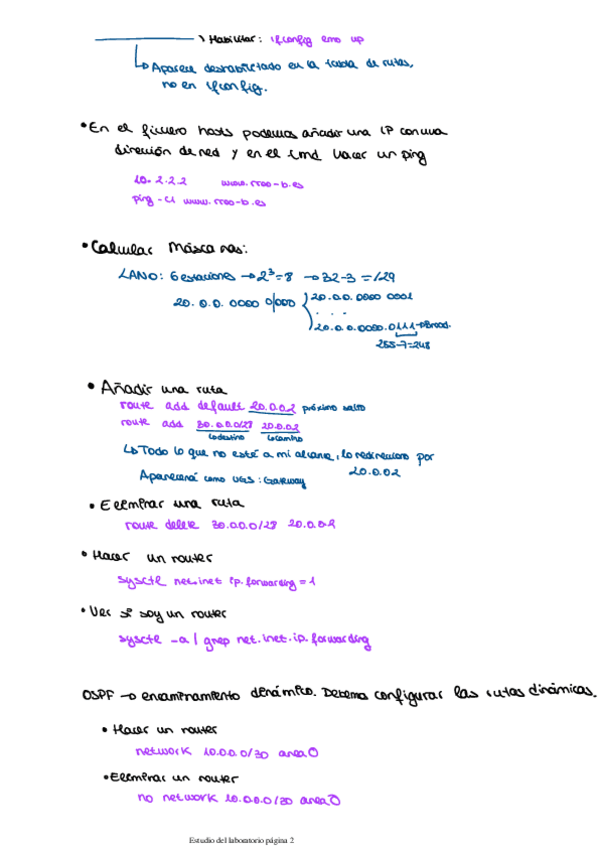 → Habilitar: ifconfig em0 up
↳ Aparece deshabilitado en la tabla de rutas,
no en ifconfig.
• En el fichero hosts podemos añadir una IP con una
dirección de red y en el cmd hacer un ping
10.2.2.2 www.rreo-b.es
ping -c1 www.rreo-b.es
• Calcular Máscaras:
LAN0: 6 estaciones → 2³=8 → 32-3 = /29
20.0.0.0000 0|000 20.0.0.0000 0001
. . .
20.0.0.0000.0111→Broad.
255-7=248
• Añadir una ruta
route add default 20.0.0.2 próximo salto
route add 30.0.0.0/28 20.0.0.2
↳destino ↳camino
↳ Todo lo que no esté a mi alcance, lo redirecciono por
20.0.0.2
Aparecerá como UGS: Gateway
• Eliminar una ruta
route delete 30.0.0.0/28 20.0.0.2
• Hacer un router
sysctl net.inet ip.forwarding = 1
• Ver si soy un router
sysctl -a | grep net.inet.ip.forwarding
OSPF → encaminamiento dinámico. Debemos configurar las rutas dinámicas.
• Hacer un router
network 10.0.0.0/30 area 0
• Eliminar un router
no network 10.0.0.0/30 area 0
Estudio del laboratorio página 2